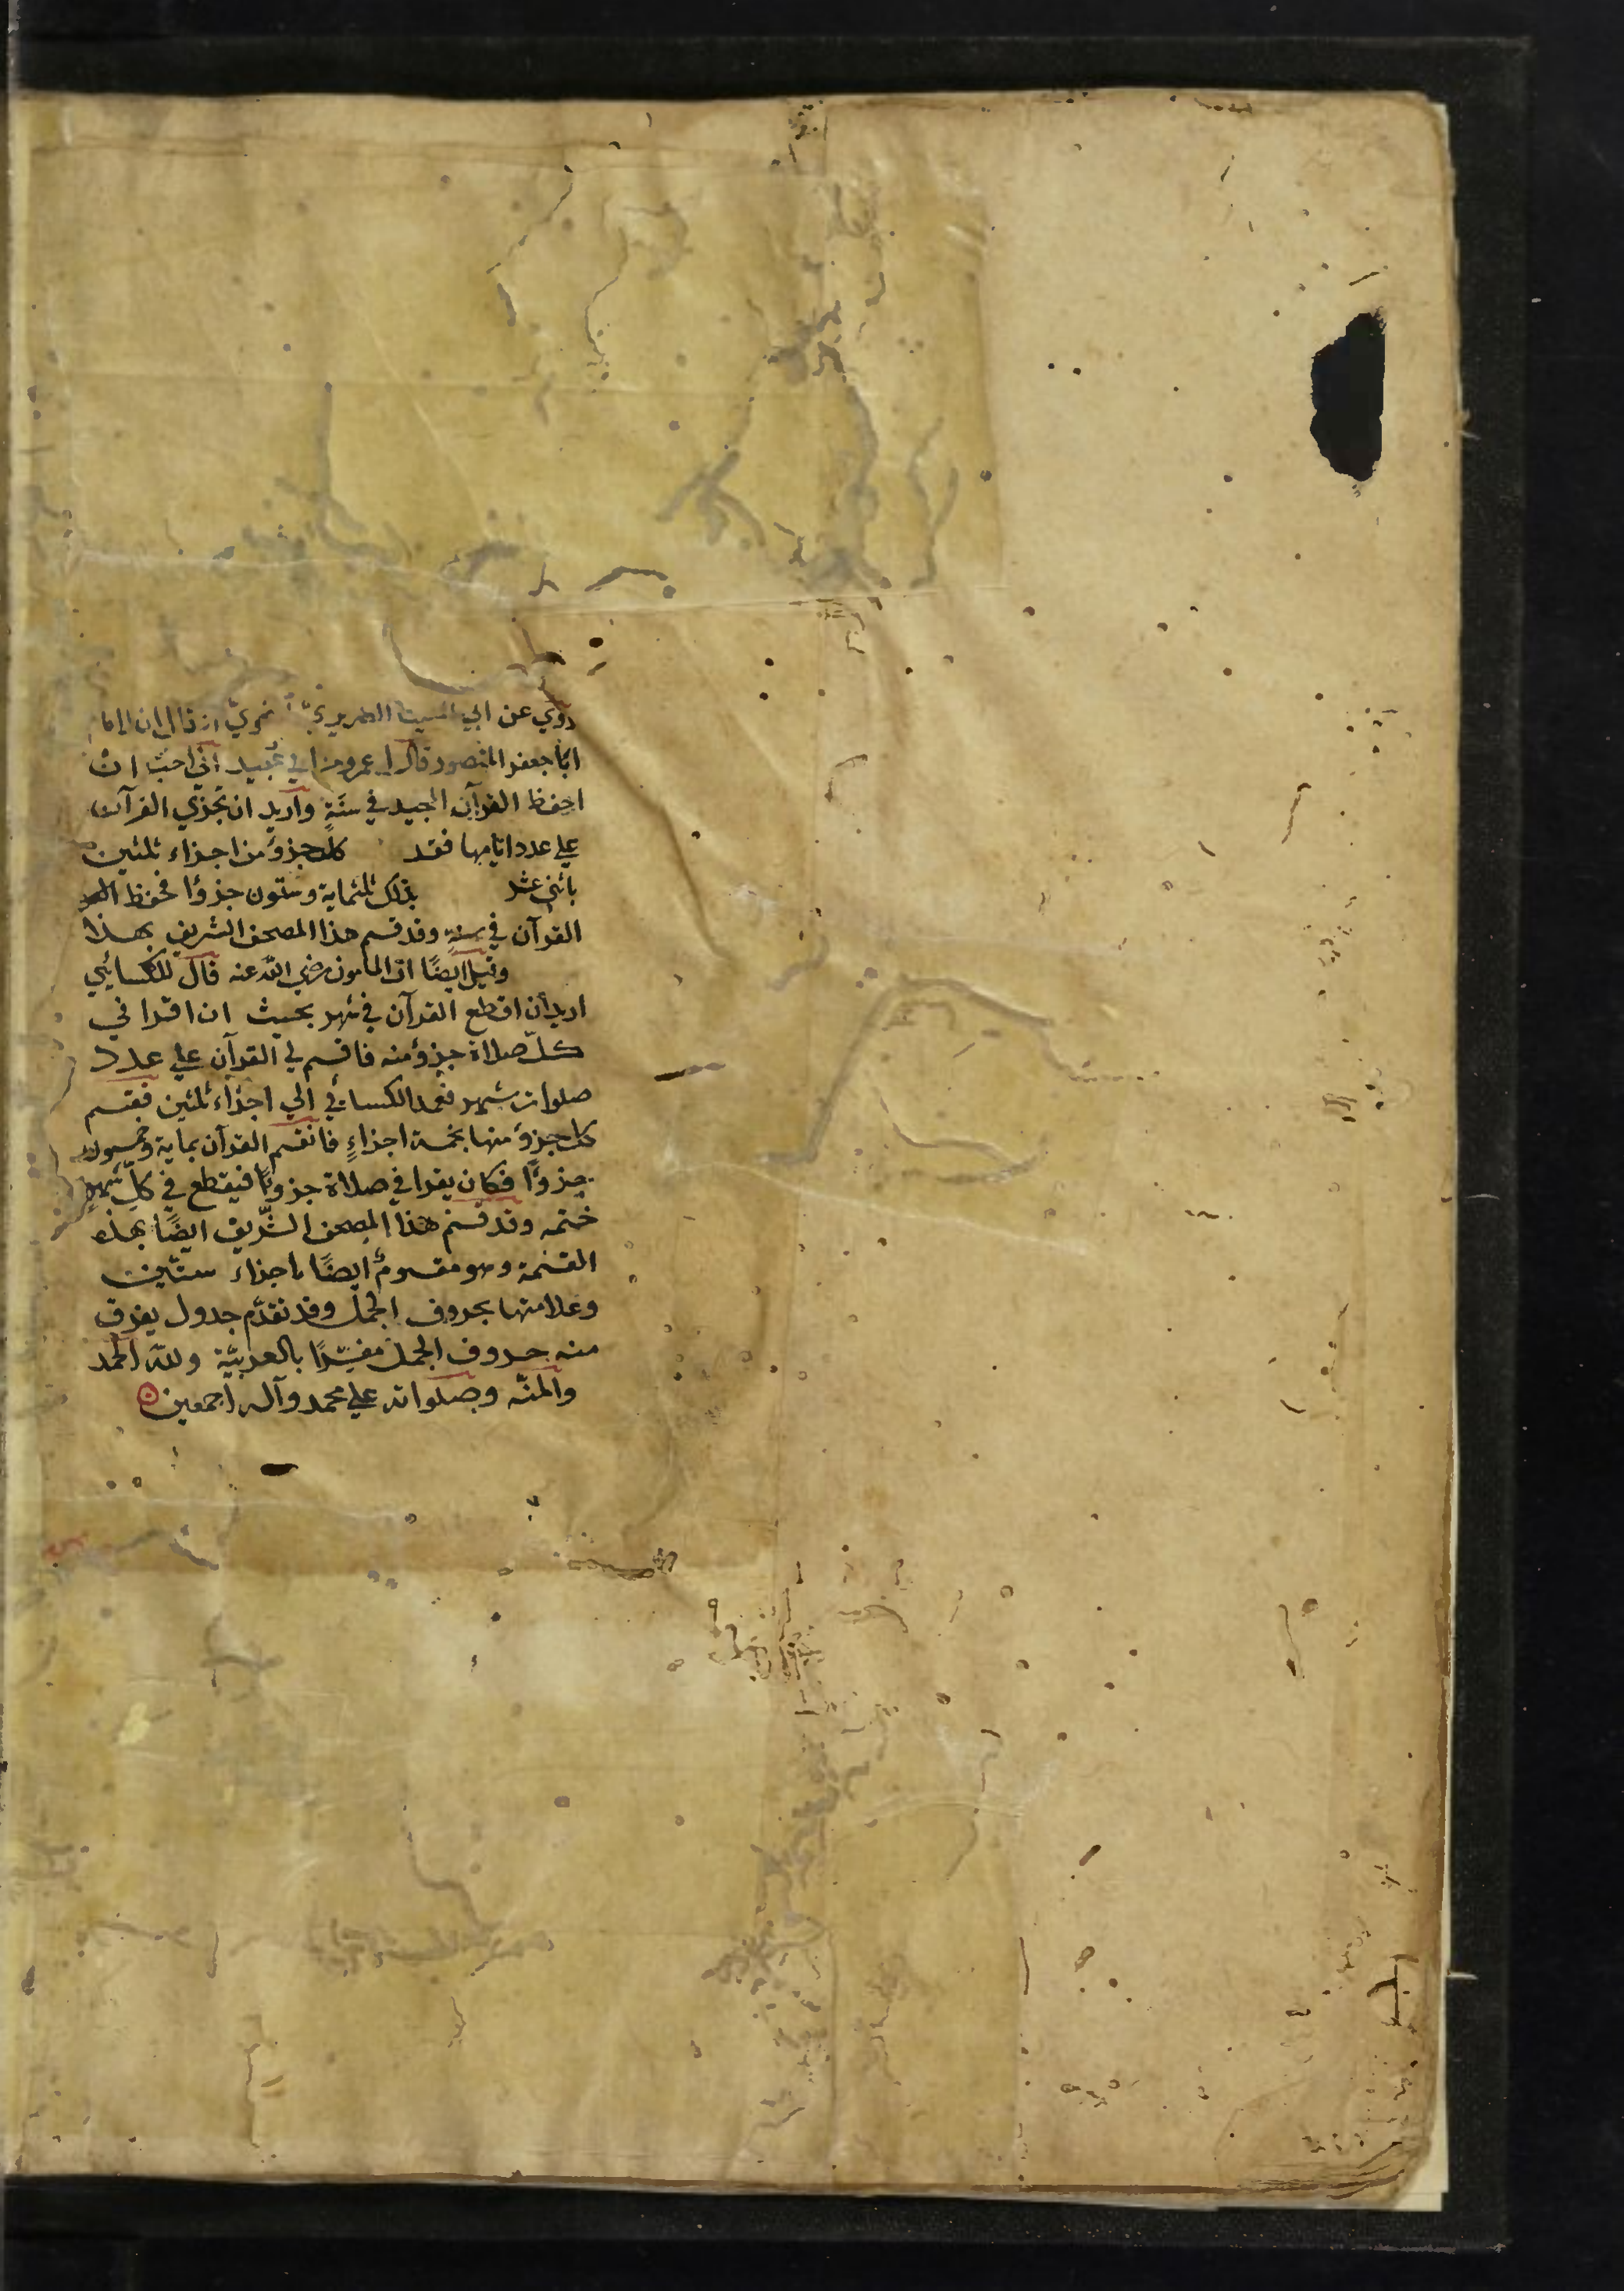 روي عن ابي الضرير انه قال ان الاما
ابا جعفر المنصور قال لعمرو بن ابي عبيد اني احب ان
احفظ القرآن المجيد في سنة واريد ان تجزي القرآن
علي عدد ايامها فقد كل جزؤ من اجزاء ثلثين
باثني عشر بذلك ثلثماية وستون جزوا فحفظ
القرآن في سنة وقد قسم هذا المصحف الشريف بهذا
وقيل ايضًا ان المامون رضي الله عنه قال للكسائي
اريد أن اقطع القرآن في شهر بحيث ان اقرا في
كلّ صلاة جزؤ منه فاقسم لي القرآن علي عدد
صلوات شهر فعمد الكسائي الي اجزاء ثلثين فقسم
كل جزؤ منها بخمسة اجزاءٍ فانقسم القرآن بماية وخمسون
جزوًا فكان يقرا في صلاة جزوًا فيقطع في كلّ شهرٍ
ختمه وقد قسم هذا المصحف الشّريف ايضًا بهذه
القسمة وهو مقسومٌ ايضًا باجزاء ستّين
وعلامتها بحروف الجمل وقد تقدّم جدول يعرف
منه حروف الجمل مفسّرًا بالعربيّة ولله الحمد
والمنّه وصلواته علي محمد وآله اجمعين